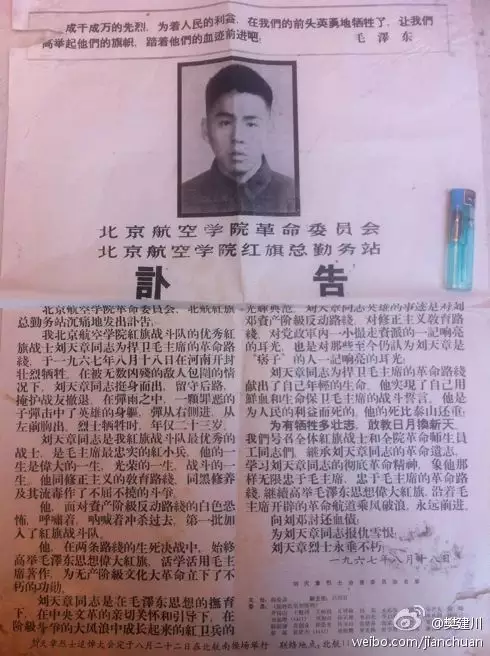 成千成万的先烈，为着人民的利益，在我們的前头英勇地牺牲了，让我們
高举起他們的旗帜，踏着他們的血迹前进吧！
毛澤东
北京航空学院革命委员会
北京航空学院红旗总勤务站
訃告
北京航空学院革命委员会、北航紅旗
总勤务站沉痛地发出訃告。
我北京航空学院紅旗战斗队的优秀紅
旗战士刘天章同志为捍卫毛主席的革命路
綫，于一九六七年八月十八日在河南开封
壮烈牺牲。在被无数凶残的敌人包围的情
况下，刘天章同志挺身而出，留守后路，
掩护战友撤退。在弹雨之中，一颗罪恶的
子彈击中了英雄的身躯，彈从右側进，从
左前胸出。烈士牺牲时，年仅二十三岁。
刘天章同志是我紅旗战斗队最优秀的
战士，是毛主席最忠实的紅小兵。他的一
生是偉大的一生，光荣的一生，战斗的一
生。他同修正主义的教育路綫，同黑修养
及其流毒作了不屈不撓的斗爭。
他，面对资产阶級反动路綫的白色恐
怖，呼嘯着，吶喊着冲杀过去，第一批加
入了紅旗战斗队。
他，在两条路綫的生死决战中，始終
高举毛澤东思想偉大紅旗，活学活用毛主
席著作，为无产阶級文化大革命立下了不
朽的功勋。
刘天章同志是在毛澤东思想的撫育
下，在中央文革的亲切关怀和引导下，在
阶級斗爭的大风浪中成长起来的紅卫兵的
光輝典范。刘天章同志英雄的事迹是对刘
邓资产阶級反动路綫、对修正主义教育路
綫、对党政軍内一小撮走資派的一記响亮
的耳光，也是对那些至今仍认为刘天章是
“痞子”的人一記响亮的耳光。
刘天章同志为捍卫毛主席的革命路綫
献出了自己年輕的生命。他实現了自己用
鮮血和生命保卫毛主席的战斗誓言。他是
为人民的利益而死的，他的死比泰山还重！
为有牺牲多壮志，敢教日月換新天。
我們号召全体紅旗战士和全院革命师生員
工同志們，继承刘天章同志的革命遺志，
学习刘天章同志的彻底革命精神，象他那
样无限忠于毛主席，忠于毛主席的革命路
綫，继續高举毛澤东思想偉大紅旗，沿着毛
主席开辟的革命航道乘风破浪，永远前进。
向刘邓討还血債！
为刘天章同志报仇雪恨！
刘天章烈士永垂不朽！
一九六七年八月十八日
刘天章烈士追悼大会定于八月二十二日在北航南操场举行
联絡地点：北航
@樊建川
weibo.com/jianchuan